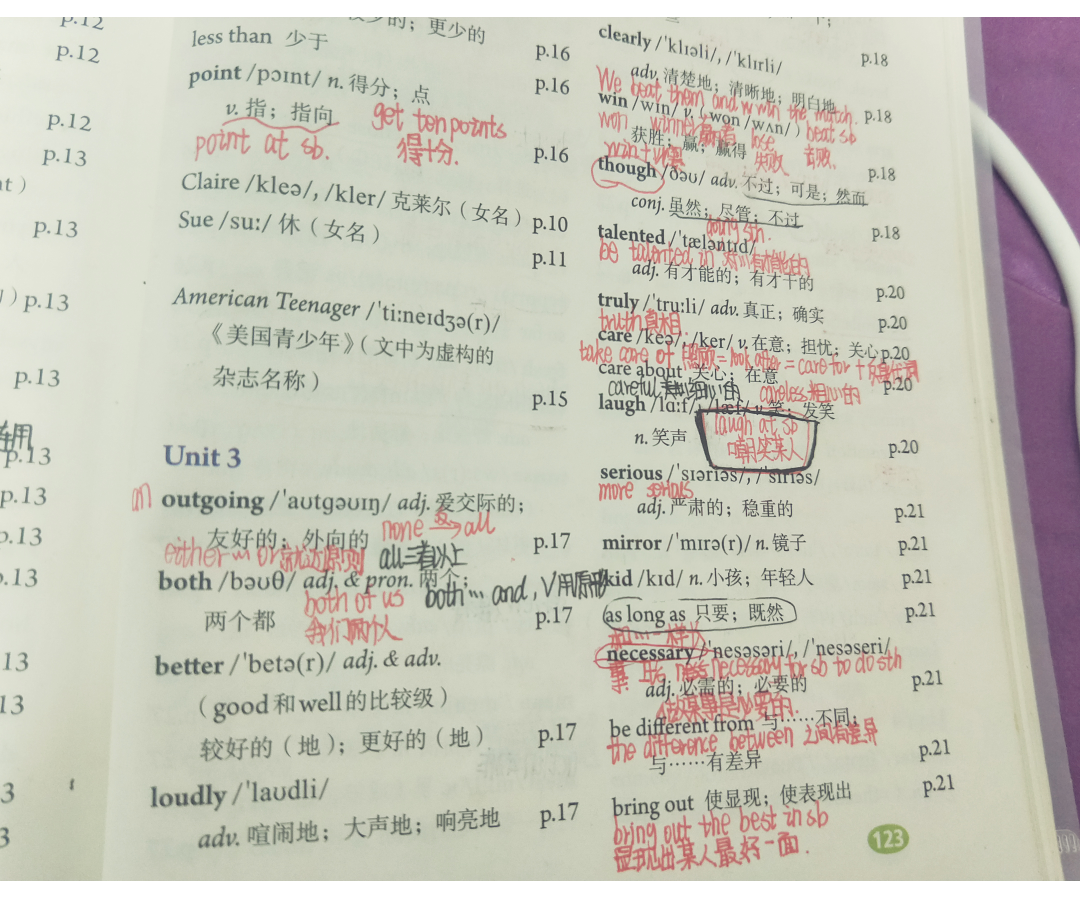 p.12
p.12
p.12
p.13
p.13
p.13
p.13
p.13
p.13
更少的
less than 少于
p.16
point /pɔɪnt/ n. 得分；点
p.16
v. 指；指向
get ten points
得十分.
point at sb.
p.16
Claire /kleə/, /kler/ 克莱尔（女名）
p.10
Sue /suː/ 休（女名）
p.11
American Teenager /ˈtiːneɪdʒə(r)/
《美国青少年》（文中为虚构的
杂志名称）
p.15
Unit 3
an
outgoing /ˈaʊtɡəʊɪŋ/ adj. 爱交际的；
友好的；外向的
p.17
none 反→ all
either … or 就近原则
all 三者以上
both /bəʊθ/ adj. & pron. 两个；
both … and, V用原形
两个都
p.17
both of us
我们两个人
better /ˈbetə(r)/ adj. & adv.
（good和well的比较级）
较好的（地）；更好的（地）
p.17
loudly /ˈlaʊdli/
adv. 喧闹地；大声地；响亮地
p.17
clearly /ˈklɪəli/, /ˈklɪrli/
p.18
adv. 清楚地；清晰地；明白地
We beat them and win the match.
win /wɪn/ v. ( won /wʌn/ )
p.18
won winner 赢者 lose 失败 beat sb 击败.
获胜；赢；赢得
p.18
though /ðəʊ/ adv. 不过；可是；然而
conj. 虽然；尽管；不过
p.18
doing sth.
talented /ˈtæləntɪd/
be talented in 对…有才能的
adj. 有才能的；有才干的
p.20
truly /ˈtruːli/ adv. 真正；确实
p.20
truth 真相.
care /keə/, /ker/ v. 在意；担忧；关心
p.20
take care of 照顾 = look after = care for +
care about 关心；在意
p.20
careful 细心的
careless 粗心的
laugh /lɑːf/, /læf/ v. 笑；发笑
laugh at sb
嘲笑某人
n. 笑声
p.20
serious /ˈsɪəriəs/, /ˈsɪriəs/
more serious
adj. 严肃的；稳重的
p.21
mirror /ˈmɪrə(r)/ n. 镜子
p.21
kid /kɪd/ n. 小孩；年轻人
p.21
as long as 只要；既然
p.21
和…一样长
necessary /ˈnesəsəri/, /ˈneseseri/
necessary for sb to do sth
adj. 必需的；必要的
p.21
做某事是必要的.
be different from 与……不同；
the difference between 之间有差异
与……有差异
p.21
bring out 使显现；使表现出
p.21
bring out the best in sb
显现出某人最好一面.
123